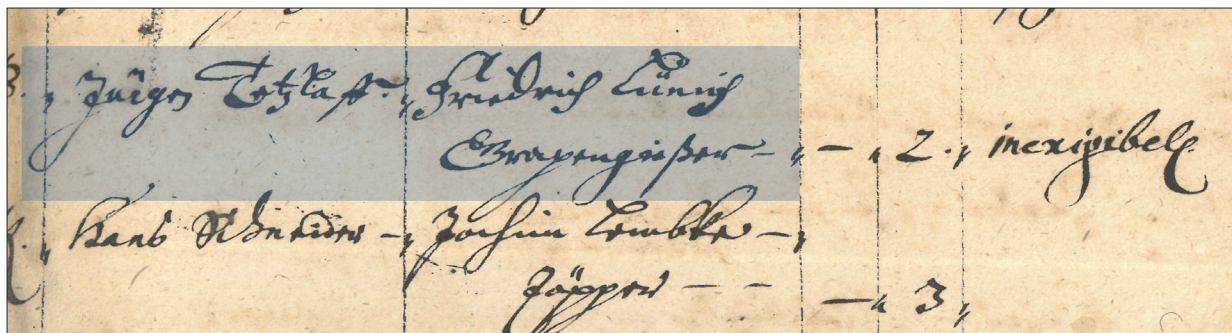 Jürgen Tetzlaff Friedrich Lünich
Grapengießer – – 2. inexigibel
Hans Schneider – Jochim Lembke –
Töpper – – – 3